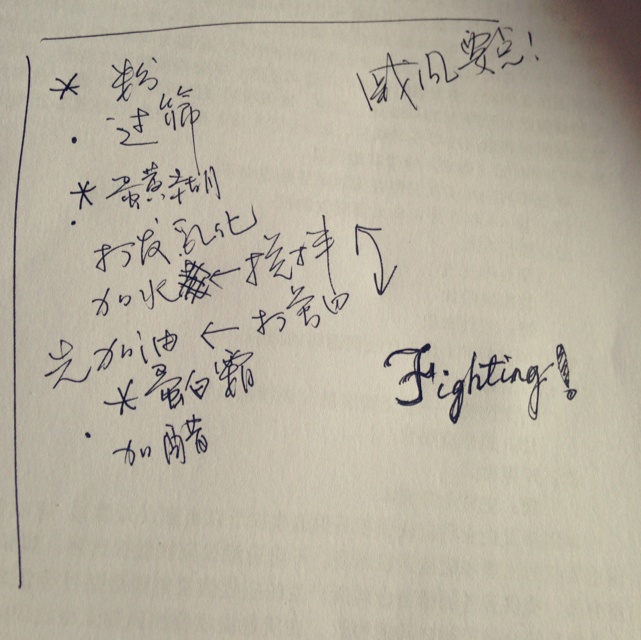 戚风要点!
* 粉
· 过筛
* 蛋黄糊
· 打发乳化
加水 ← 搅拌
先加油 ← 打蛋白
* 蛋白霜
· 加醋
Fighting!